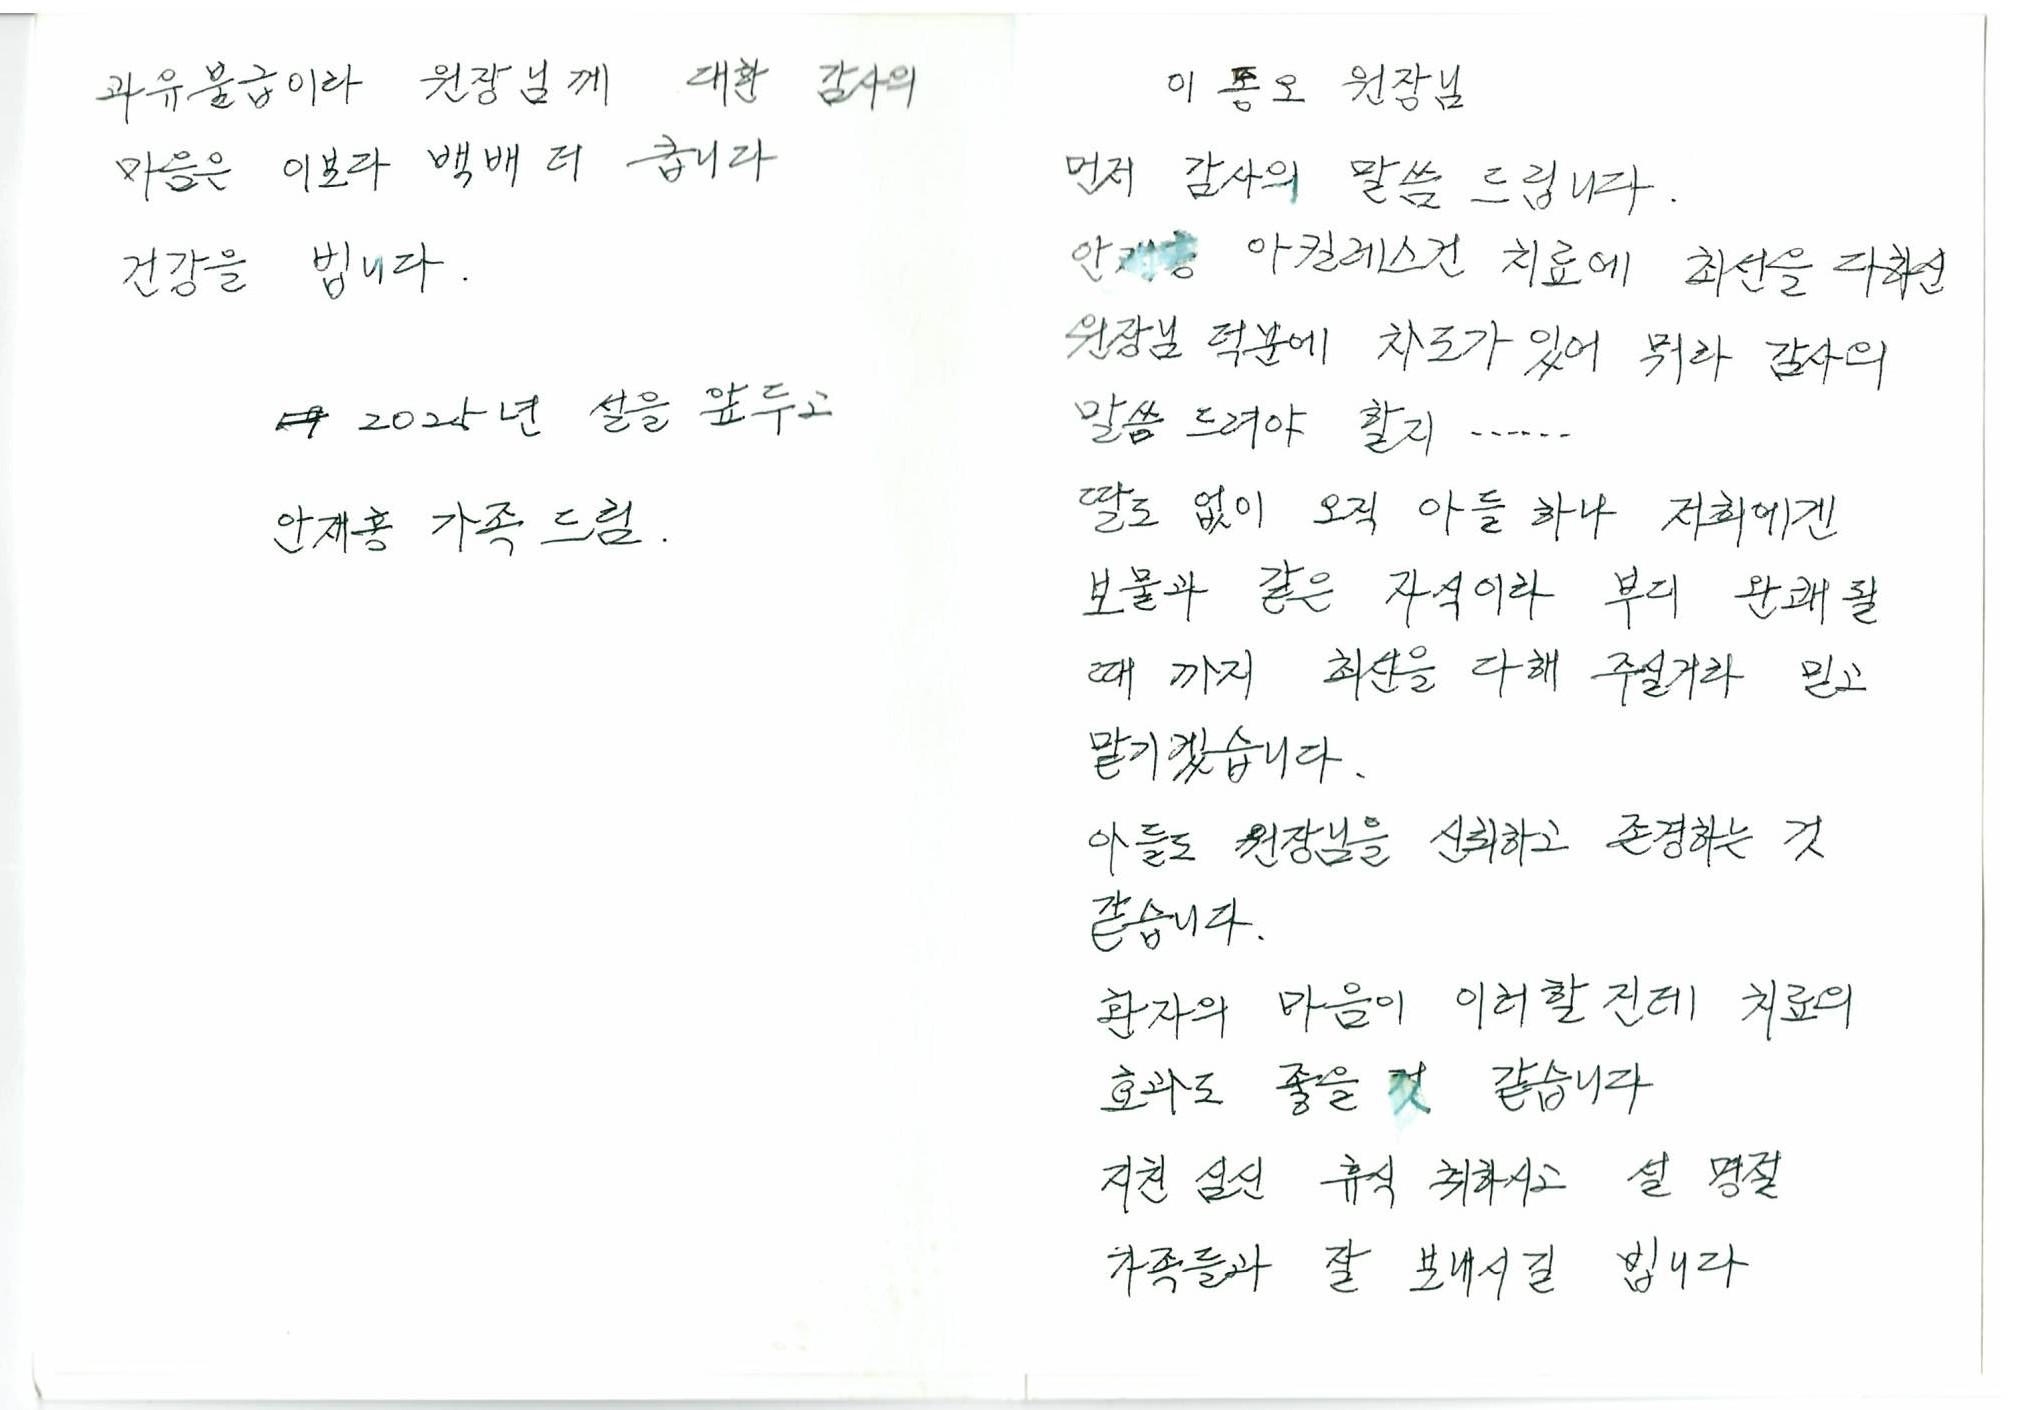 이 종오 원장님
먼저 감사의 말씀 드립니다.
안재홍 아킬레스건 치료에 최선을 다하신
원장님 덕분에 차도가 있어 뭐라 감사의
말씀 드려야 할지 ......
딸도 없이 오직 아들 하나 저희에겐
보물과 같은 자식이라 부디 완쾌될
때 까지 최선을 다해 주실거라 믿고
맡기겠습니다.
아들도 원장님을 신뢰하고 존경하는 것
같습니다.
환자의 마음이 이러할진데 치료의
효과도 좋을 것 같습니다
지친 심신 휴식 취하시고 설 명절
가족들과 잘 보내시길 빕니다
과유불급이라 원장님께 대한 감사의
마음은 이보다 백배 더 큽니다
건강을 빕니다.
2025년 설을 앞두고
안재홍 가족 드림.